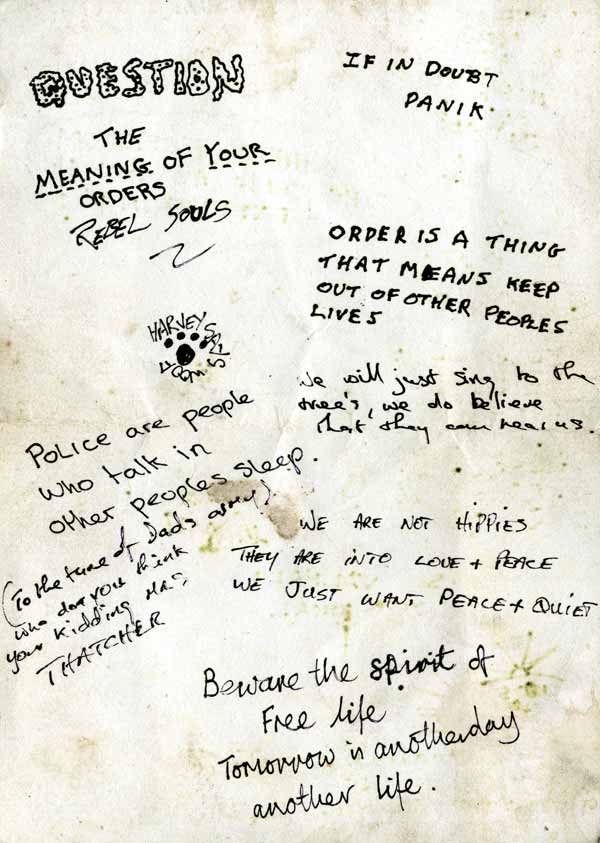 QUESTION
THE
MEANING OF YOUR
ORDERS
REBEL SOULS
IF IN DOUBT
PANIK.
ORDER IS A THING
THAT MEANS KEEP
OUT OF OTHER PEOPLES
LIVES
HARVEY
We will just sing to the
tree's, we do believe
that they can hear us.
POLICE are people
who talk in
other peoples sleep.
(To the tune of Dads army)
who do you think
your kidding MRS
THATCHER
WE ARE NOT HIPPIES
THEY ARE INTO LOVE + PEACE
WE JUST WANT PEACE + QUIET
Beware the spirit of
Free life
Tomorrow is another day
another life.